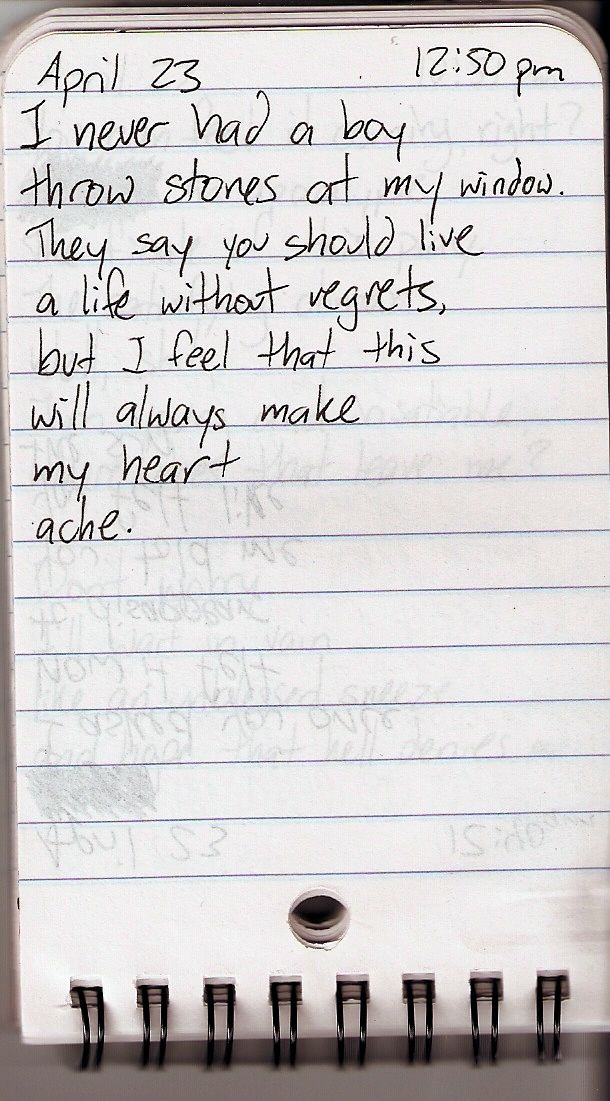 April 23 12:50 pm
I never had a boy
throw stones at my window.
They say you should live
a life without regrets,
but I feel that this
will always make
my heart
ache.